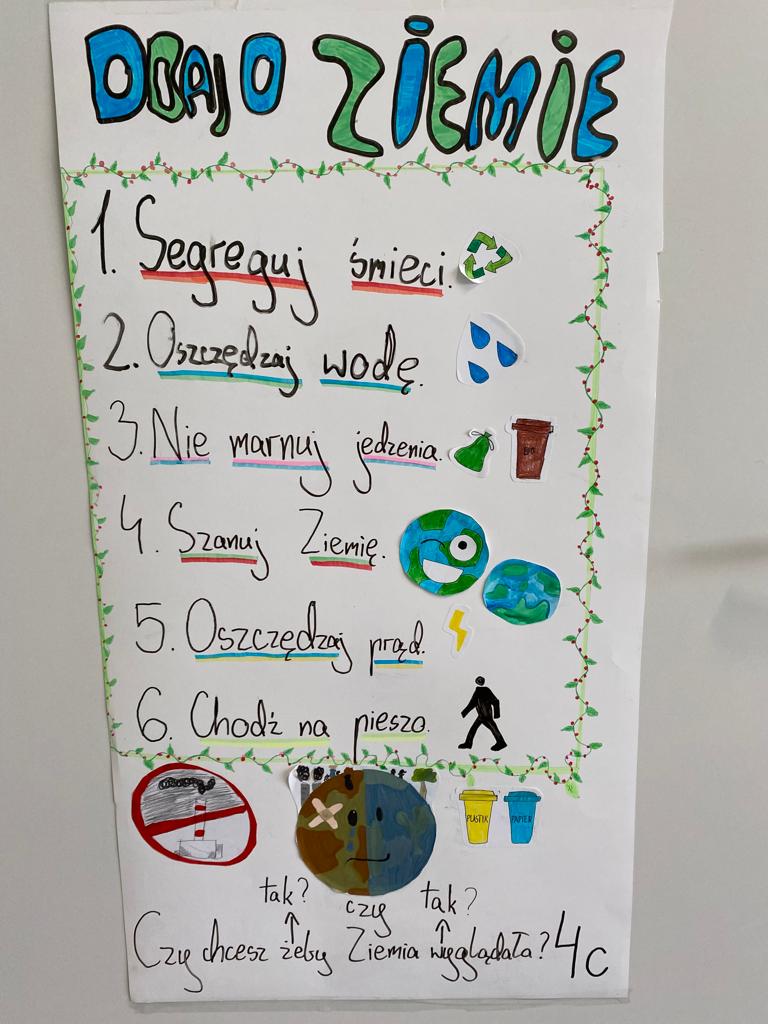 DBAJ O ZIEMIE
1. Segreguj śmieci.
2. Oszczędzaj wodę.
3. Nie marnuj jedzenia.
BIO
4. Szanuj Ziemię.
5. Oszczędzaj prąd.
6. Chodź na pieszo.
PLASTIK PAPIER
tak? czy tak?
Czy chcesz żeby Ziemia wyglądała? 4c